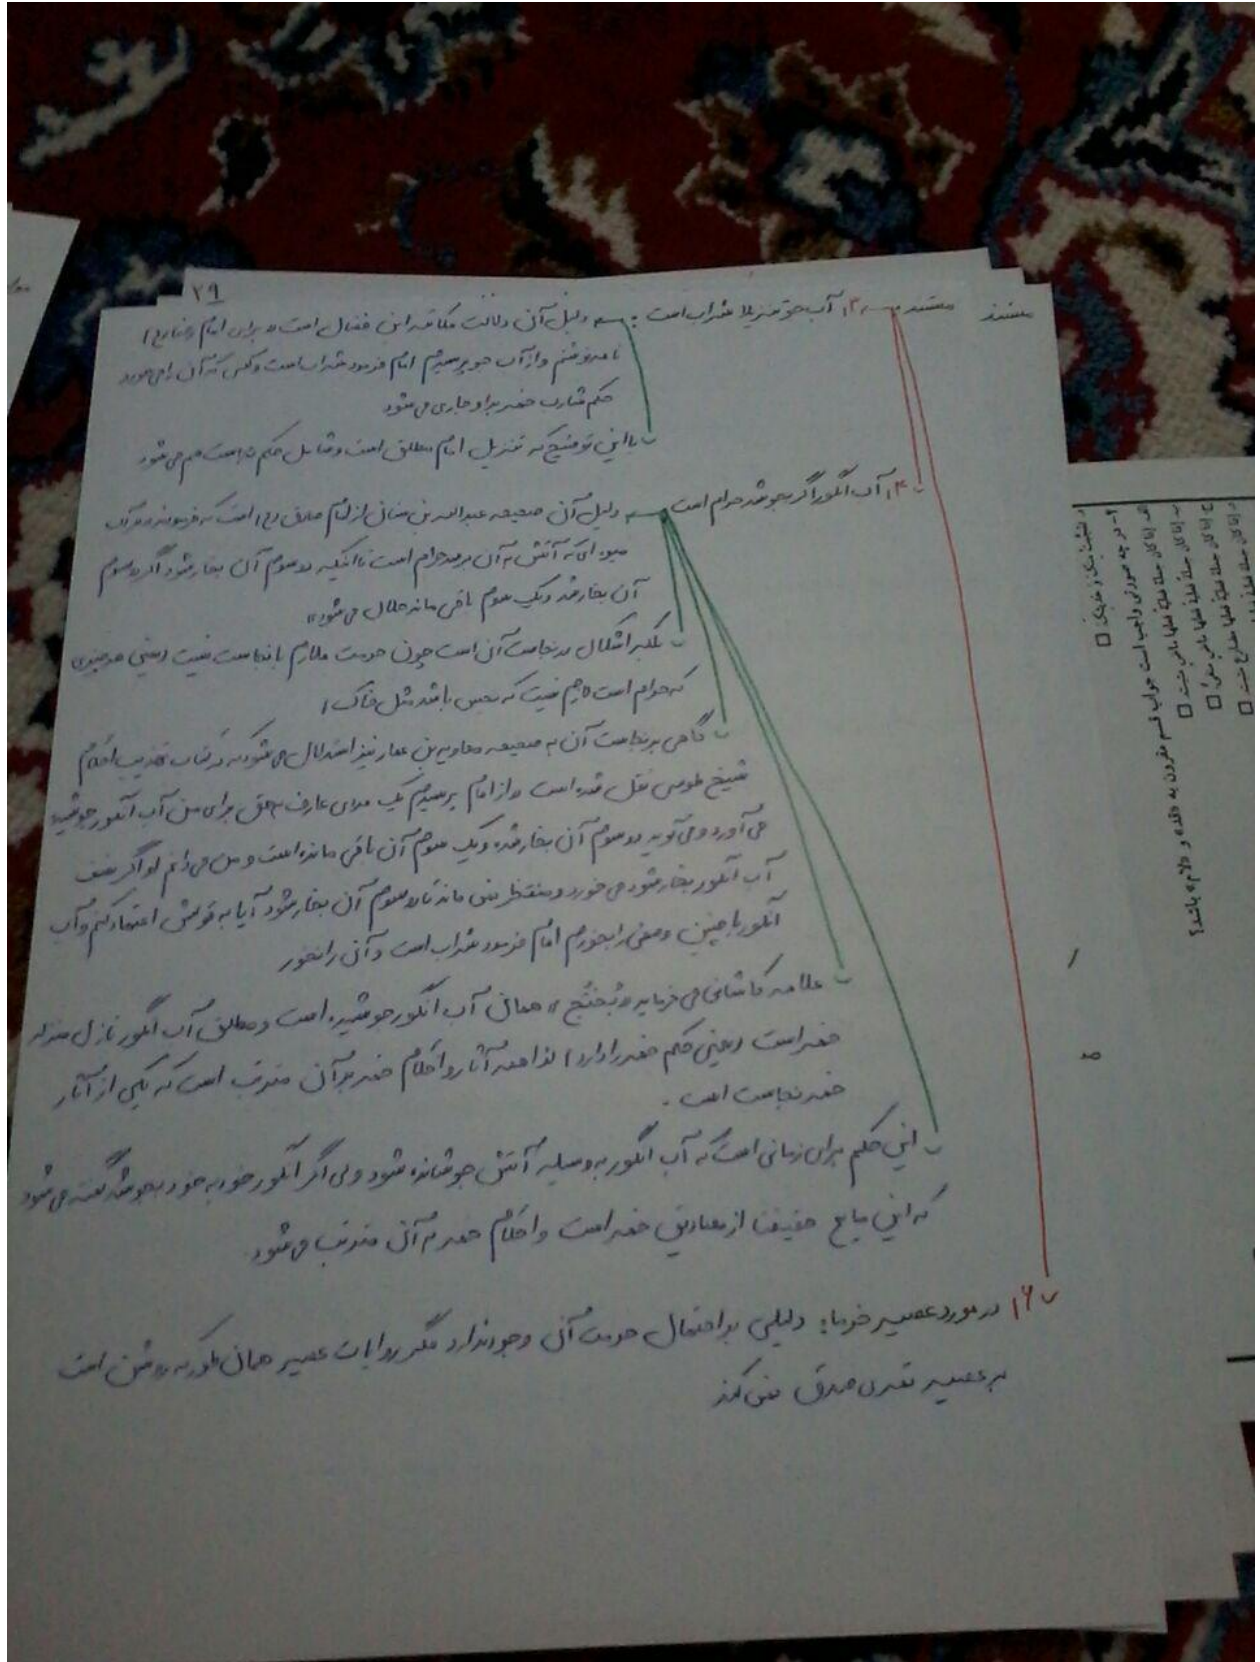 ۲۹
مستند مستند ۳، آب جو تنزیلا شراب است: دلیل آن دلالت مکاتبه ابن فضال است «برای امام رضا(ع)
نامه نوشتم و از آب جو پرسیدم امام فرمود شراب است و کسی که آن را می خورد
حکم شارب خمر بر او جاری می شود
با این توضیح که تنزیل امام مطلق است و شامل حکم نجاست هم می شود
۴، آب انگور اگر بجوشد حرام است دلیل آن صحیحه عبدالله بن سنان از امام صادق (ع) است که فرمودند هر آب
میوه ای که آتش به آن برسد حرام است تا اینکه دو سوم آن بخار شود اگر دو سوم
آن بخار شد و یک سوم باقی ماند حلال می شود»
بلکه اشکال در نجاست آن است چون حرمت ملازم با نجاست نیست (یعنی هر چیزی
که حرام است لازم نیست که نجس باشد مثل خاک)
گاهی بر نجاست آن به صحیحه معاویه بن عمار نیز استدلال می شود که در کتاب تهذیب احکام
شیخ طوسی نقل شده است «از امام پرسیدم یک مردی عارف به حق برای من آب انگور جوشیده
می آورد و می گوید دو سوم آن بخار شده و یک سوم آن باقی مانده است و من می دانم او اگر نصف
آب انگور بخار شود می خورد و منتظر نمی ماند تا دو سوم آن بخار شود آیا به قولش اعتماد کنم و آب
انگور با چنین وصفی را بخورم امام فرمود شراب است و آن را نخور
علامه کاشانی می فرماید «بُختُج» همان آب انگور جوشیده است و مطلق آب انگور نازل منزله
خمر است (یعنی حکم خمر را دارد) لذا همه آثار و احکام خمر بر آن مترتب است که یکی از آثار
خمر نجاست است.
این حکم برای زمانی است که آب انگور به وسیله آتش جوشانده شود ولی اگر انگور خود به خود بجوشد گفته می شود
که این مایع حقیقتا از مصادیق خمر است و احکام خمر بر آن مترتب می شود.
۶، در مورد عصیر خرما: دلیلی بر احتمال حرمت آن وجود ندارد مگر روایات عصیر همان طور که روشن است
بر عصیر تمری صدق نمی کند
۲- در چه صورتی واجب است جواب قسم مقرون به «قد» و «لام» باشد؟